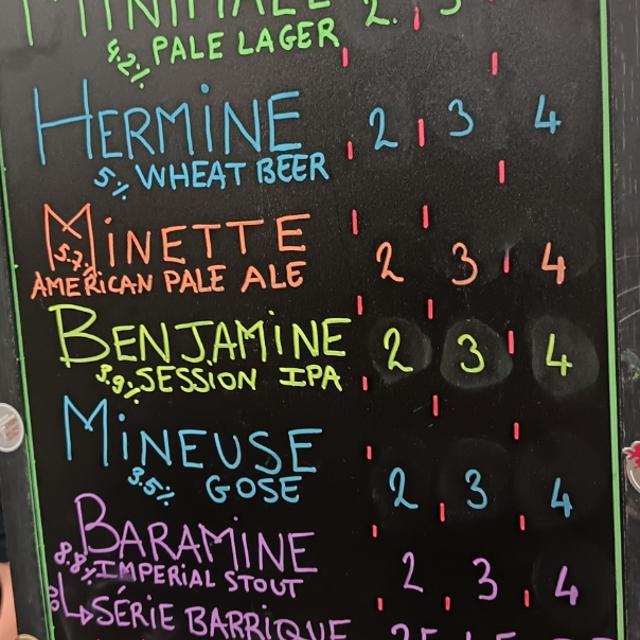 2. 3
4.2% PALE LAGER
HERMINE 2 3 4
5% WHEAT BEER
MINETTE 2 3 4
5.7%
AMERICAN PALE ALE
BENJAMINE 2 3 4
3.9% SESSION IPA
MINEUSE
3.5% GOSE 2 3 4
BARAMINE
8.8% IMPERIAL STOUT 2 3 4
SÉRIE BARRIQUE